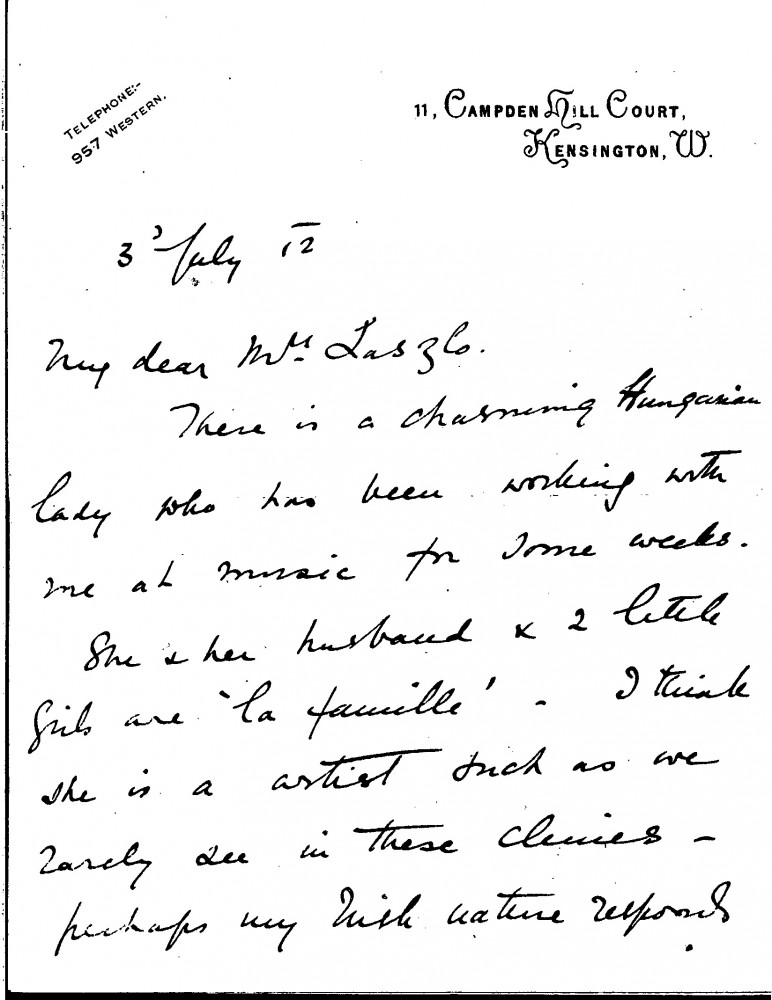 TELEPHONE:-
957 WESTERN.
11, CAMPDEN HILL COURT,
KENSINGTON, W.
3 July 12
My dear Mrs Laszlo.
There is a charming Hungarian
lady who has been working with
me at music for some weeks.
She & her husband & 2 little
girls are 'la famille' - I think
she is a artist such as we
rarely see in these climes -
perhaps my Irish nature responds